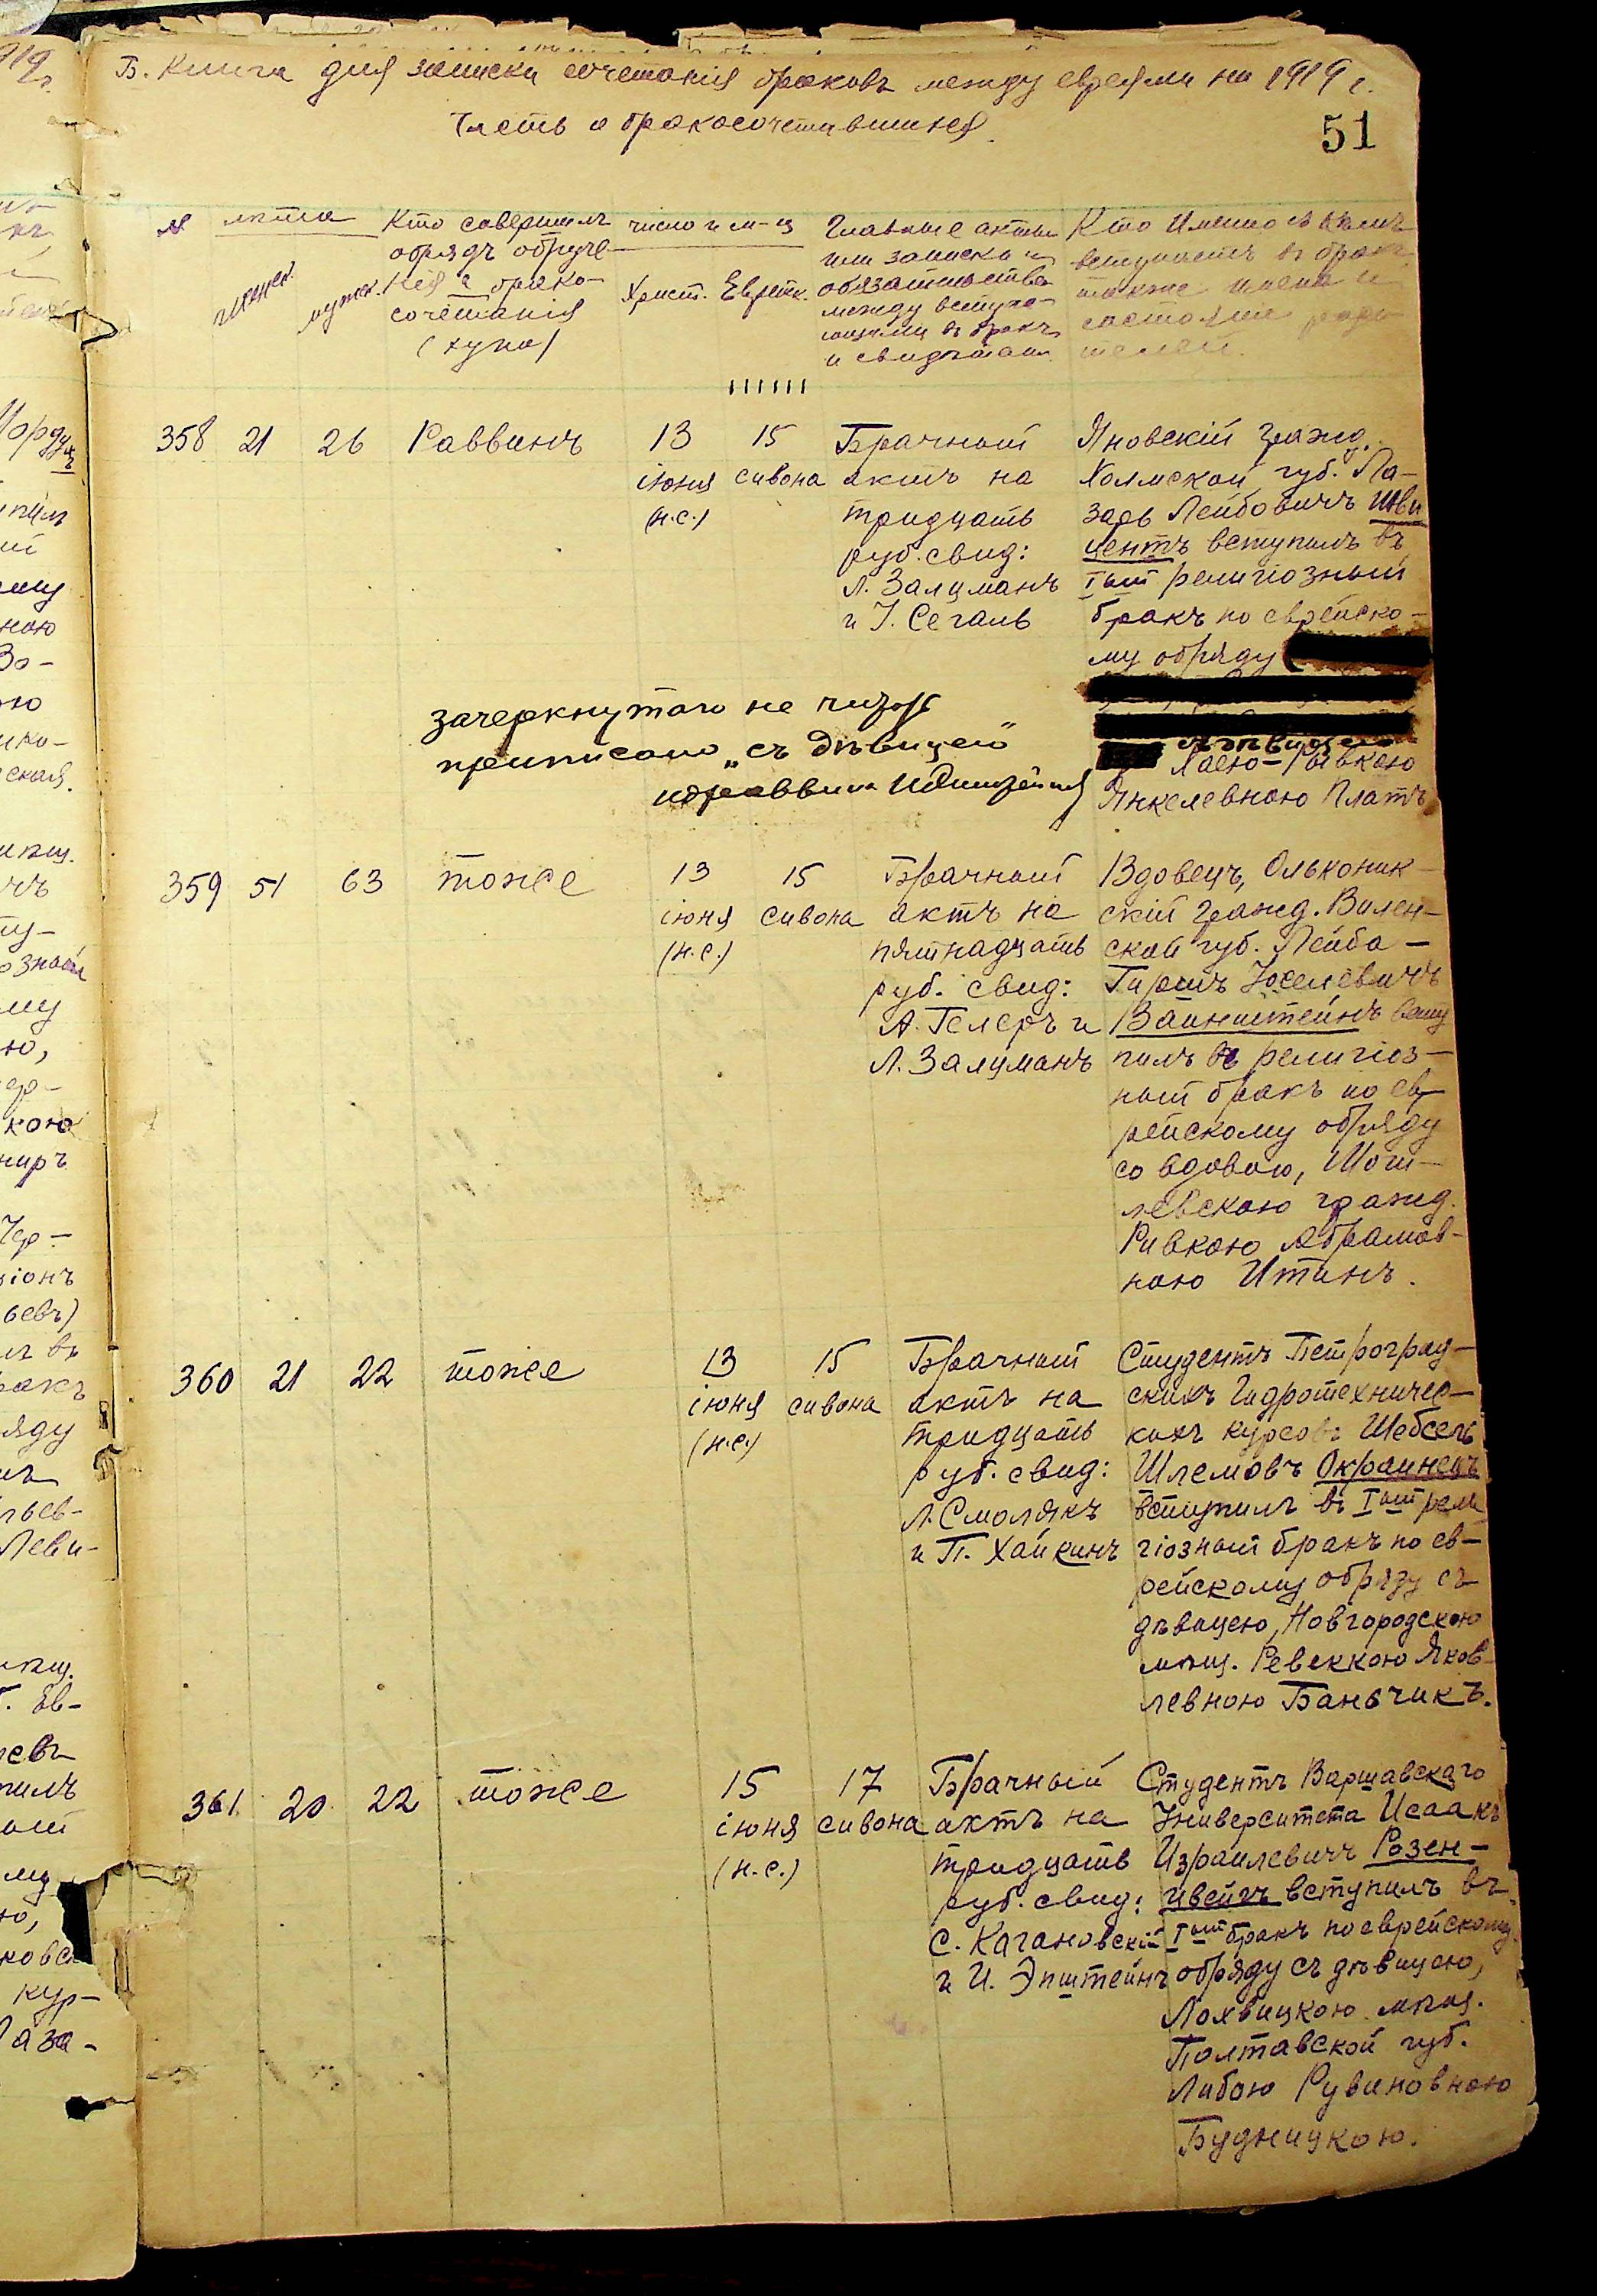 Б. Книга для записки сочетанія браковъ между евреями на 1919 г.
Часть о бракосочетавшихся.
51
№
лѣта
женск.
мужск.
Кто совершилъ
обрядъ обруче-
нія и брако-
сочетанія
(хупа)
число и м-ц
Христ. Еврейск.
Главные акты
или записки и
обязательства
между вступа-
ющими въ бракъ
и свидѣтели
Кто именно съ кѣмъ
вступаетъ въ бракъ
также имена и
состояніе роди-
телей.
358 21 26 Раввинъ
13 15
іюня сивона
(н.с.)
Брачный
актъ на
тридцать
руб. свид:
Л. Залцманъ
и І. Сегаль
Яновскій гражд.
Холмской губ. Ла-
зарь Лейбовичъ Шви
центъ вступилъ въ
Iый религіозный
бракъ по еврейско-
му обряду
съ дѣвицею
Хаею-Рывкою
Янкелевною Платъ
зачеркнутого не читать
приписано „съ дѣвицею"
359 51 63 тоже
13 15
іюня сивона
(н.с.)
Брачный
актъ на
пятнадцать
руб. свид:
А. Гелеръ и
Л. Залцманъ
Вдовецъ, Олькеник-
скій гражд. Вилен-
ской губ. Лейба-
Гиршъ Хселевичъ
Вайнштейнъ всту
пилъ въ религіоз-
ный бракъ по ев-
рейскому обряду
со вдовою, Моги-
левскою гражд.
Ривкою Абрамов-
ною Итинъ.
360 21 22 тоже
13 15
іюня сивона
(н.с.)
Брачный
актъ на
тридцать
руб. свид:
Л. Смолякъ
и П. Хайкинъ
Студентъ Петроград-
скихъ Гидротехничес-
кихъ курсовъ Шебсель
Шлемовъ Окраинецъ
вступилъ въ Iый рели
гіозный бракъ по ев-
рейскому обряду съ
дѣвицею, Новгородскою
мѣщ. Ревеккою Яков-
левною Баньчикъ.
361 20 22 тоже
15 17
іюня сивона
(н.с.)
Брачный
актъ на
тридцать
руб. свид:
С. Кагановскій
и И. Эпштейнъ
Студентъ Варшавскаго
Университета Исаакъ
Израилевичъ Розен-
цвейгъ вступилъ въ
Iый бракъ по еврейскому
обряду съ дѣвицею,
Лохвицкою мѣщ.
Полтавской губ.
Либою Рувиновною
Будницкою.